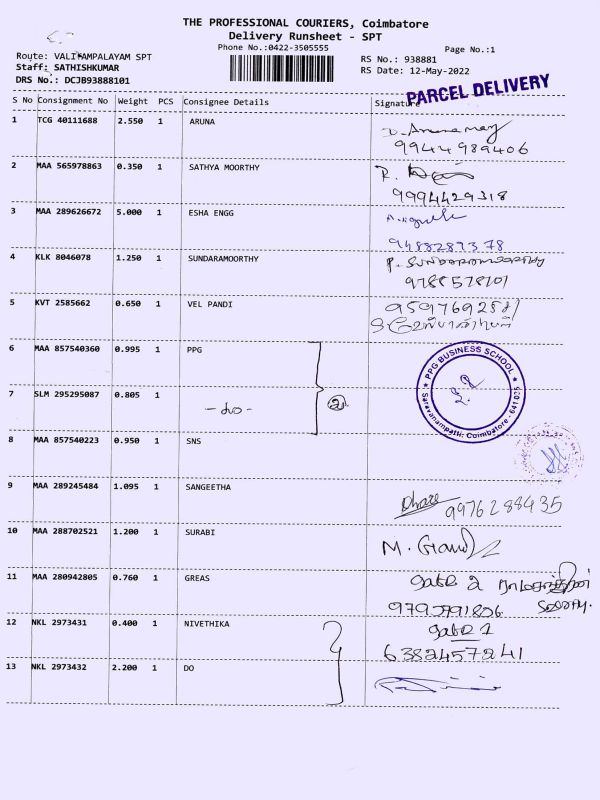 THE PROFESSIONAL COURIERS, Coimbatore
Delivery Runsheet - SPT
Phone No.:0422-3505555
Page No.:1
Route: VALIYAMPALAYAM SPT
RS No.: 938881
Staff: SATHISHKUMAR
RS Date: 12-May-2022
DRS No.: DCJB93888101
PARCEL DELIVERY
S No Consignment No Weight PCS Consignee Details Signature
1 TCG 40111688 2.550 1 ARUNA
9944989406
2 MAA 565978863 0.350 1 SATHYA MOORTHY R.
9994429318
3 MAA 289626672 5.000 1 ESHA ENGG
9488289378
4 KLK 8046078 1.250 1 SUNDARAMOORTHY P. SUNDARAMOORTHY
9788578701
5 KVT 2585662 0.650 1 VEL PANDI
6 MAA 857540360 0.995 1 PPG
7 SLM 295295087 0.805 1 -do- 2
PPG BUSINESS SCHOOL
Saravanampatti, Coimbatore - 641 035
8 MAA 857540223 0.950 1 SNS
9 MAA 289245484 1.095 1 SANGEETHA
9976288435
10 MAA 288702521 1.200 1 SURABI
M.
11 MAA 280942805 0.760 1 GREAS gate 2
12 NKL 2973431 0.400 1 NIVETHIKA gate 1
6382457241
13 NKL 2973432 2.200 1 DO